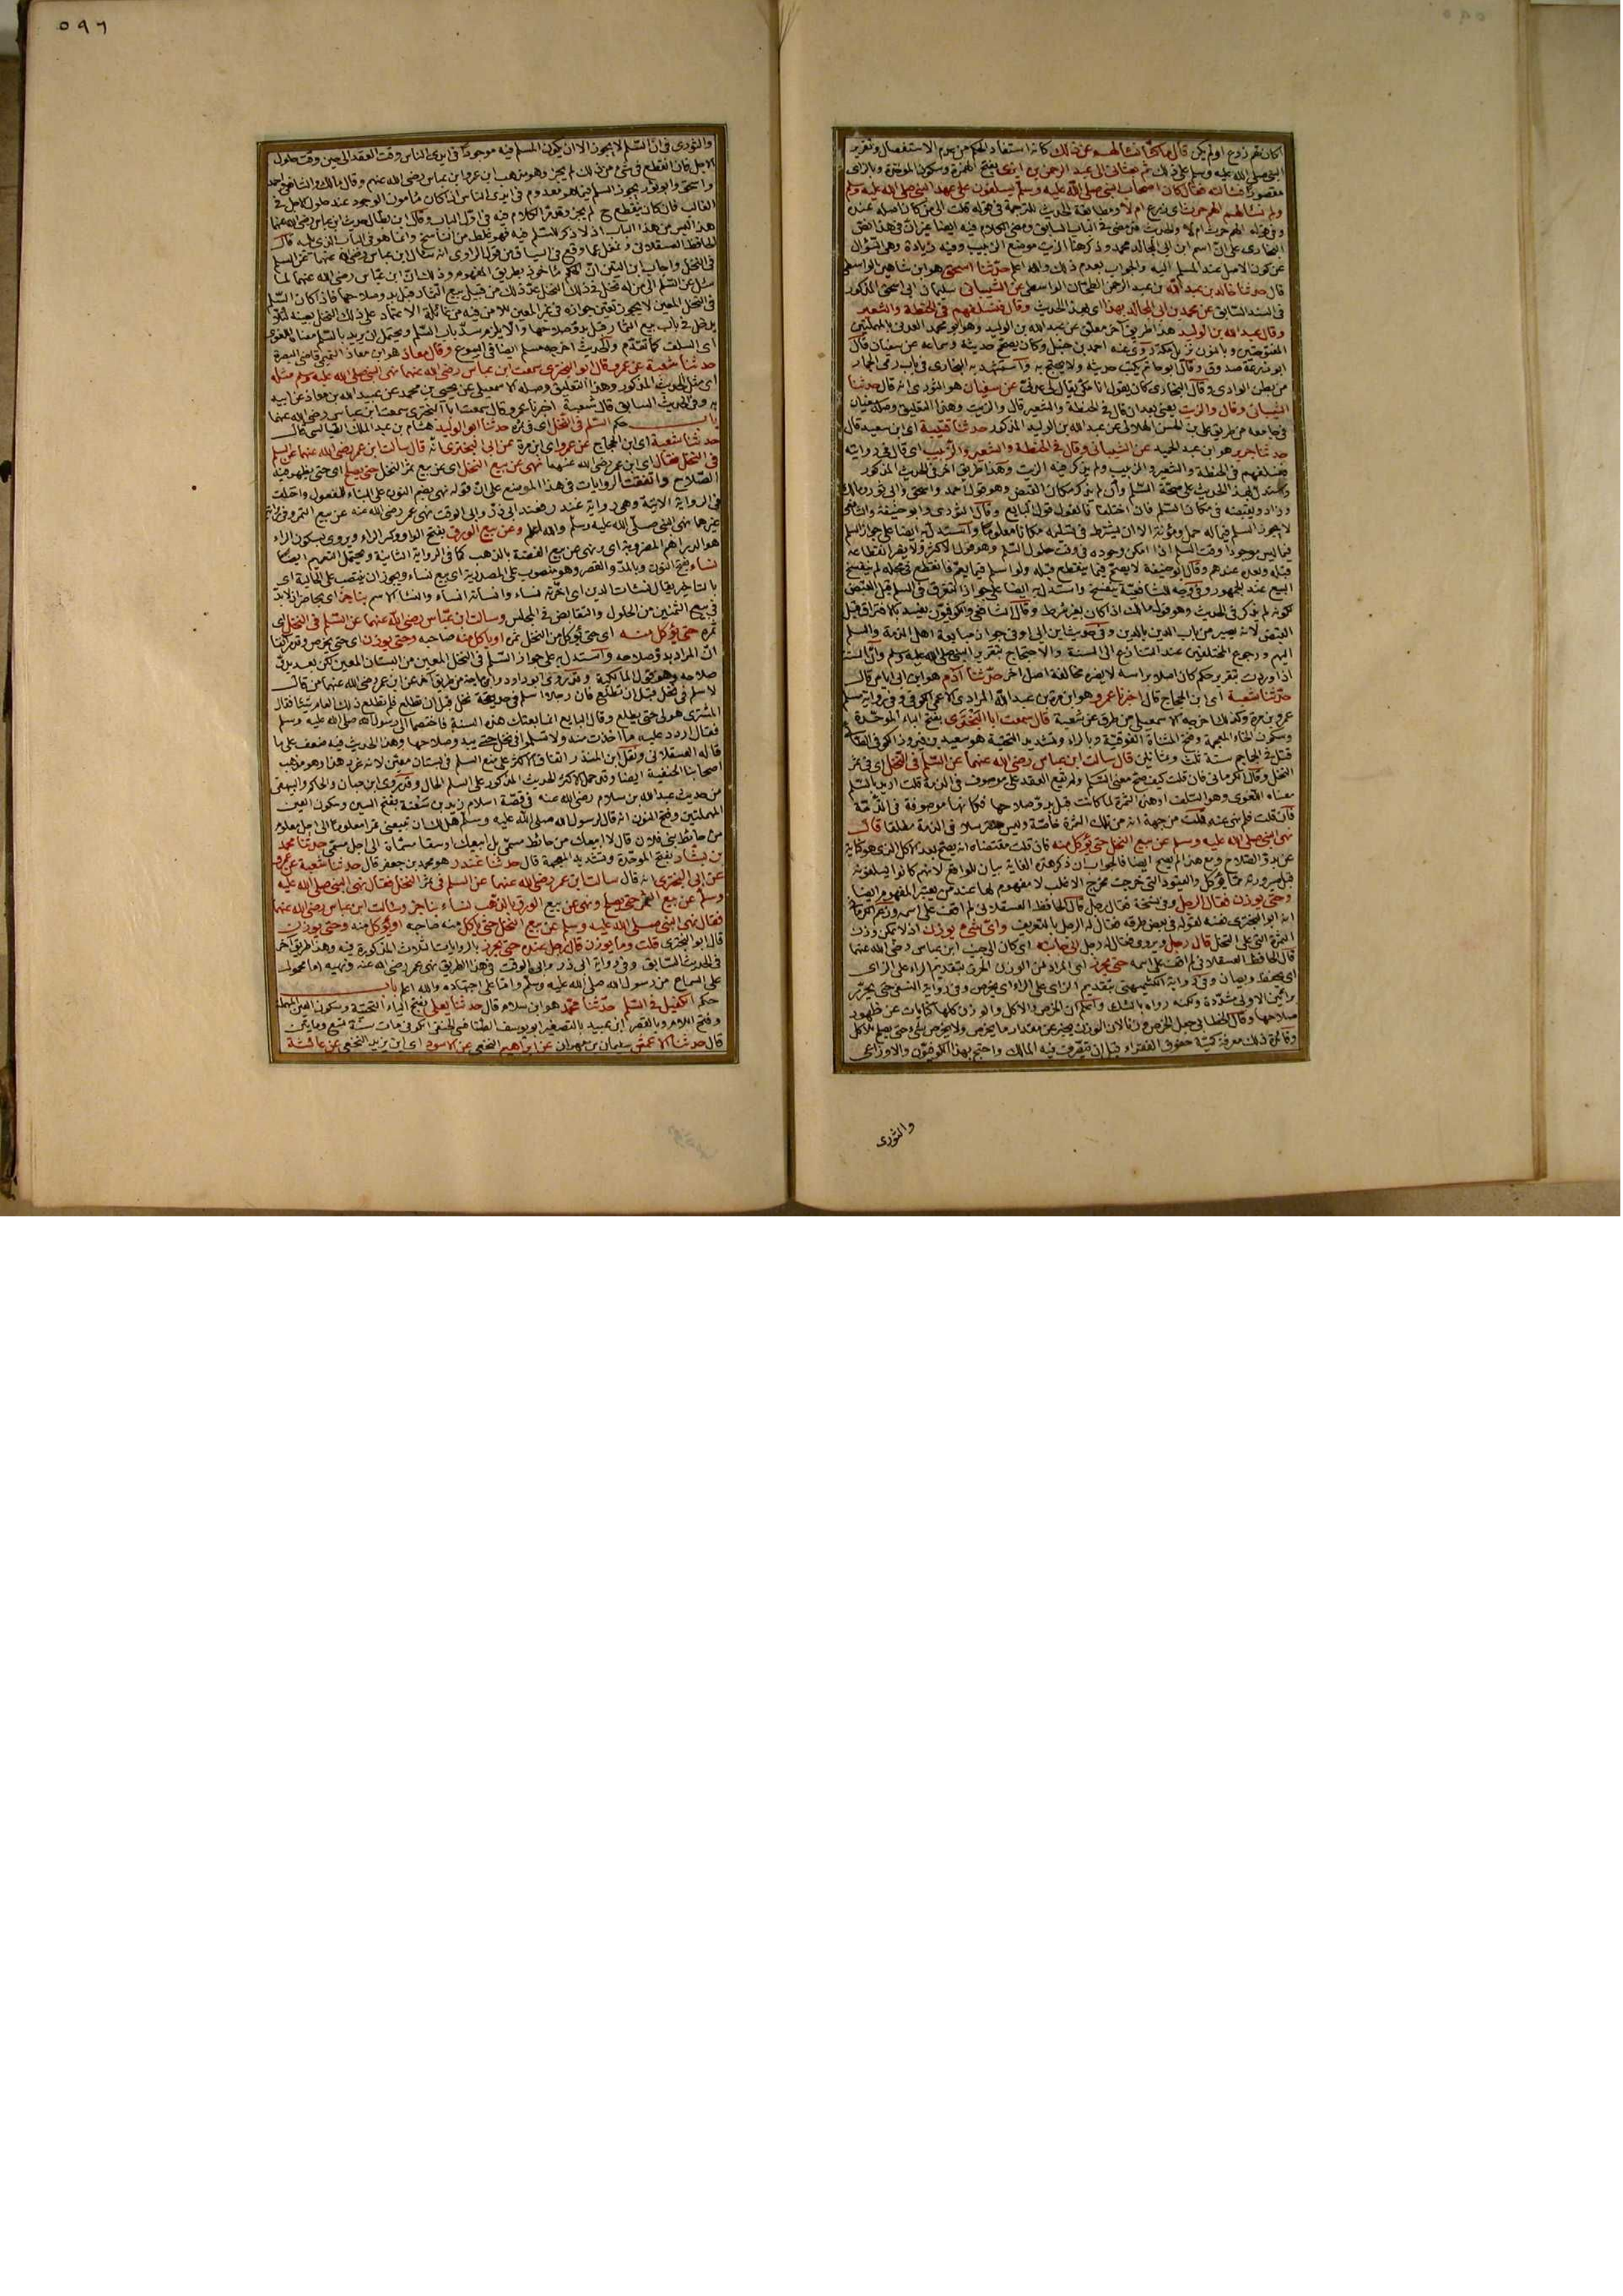 ٥٩٦
اكان لهم زرع او لم يكن قال ما كنا نسألهم عن ذلك كانه استفاد الحكم من عدم الاستفصال وتقرير
النبي صلى الله عليه وسلم على ذلك ثم بعثاني الى عبد الرحمن بن ابزى بفتح الهمزة وسكون الموحدة وبالزاي
مقصورا فسألته فقال كان اصحاب النبي صلى الله عليه وسلم يسلفون على عهد النبي صلى الله عليه وسلم
ولم نسألهم الهم حرث اي زرع ام لا ومطابقة الحديث للترجمة في قوله قلت الى من كان اصله عنده
وفي قوله الهم حرث ام لا والحديث قد مضى في الباب السابق ومضى الكلام فيه ايضا غير ان في هذا اتفق
البخاري على ان اسم ابن ابي المجالد محمد وذكر هنا الزيت موضع الزبيب وفيه زيادة وهي السؤال
عن كون الاصل عند المسلم اليه والجواب بعدم ذلك والله اعلم حدثنا اسحق هو ابن شاهين الواسطي
قال حدثنا خالد بن عبد الله بن عبد الرحمن الطحان الواسطي عن الشيباني سليمان ابي اسحق المذكور
في السند السابق عن محمد بن ابي المجالد بهذا اي بهذا الحديث وقال فنسلفهم في الحنطة والشعير
وقال عبد الله بن الوليد هذا طريق آخر معلق عن عبد الله بن الوليد وهو ابو محمد العدني بالمهملتين
المفتوحتين وبالنون نزيل مكة روى عنه احمد بن حنبل وكان يصحح حديثه وسماعه عن سفيان قال
ابو زرعة صدوق وقال ابو حاتم يكتب حديثه ولا يحتج به واستشهد به البخاري في باب رمي الجمار
من بطن الوادي وقال البخاري كان يقول انا مكي يقال لي عدني عن سفيان هو الثوري انه قال حدثنا
الشيباني وقال والزيت يعني بعد ان قال في الحنطة والشعير قال والزيت وهذا التعليق وصله سفيان
في جامعه من طريق علي بن الحسن الهلالي عن عبد الله بن الوليد المذكور حدثنا قتيبة اي ابن سعيد قال
حدثنا جرير هو ابن عبد الحميد عن الشيباني وقال في الحنطة والشعير والزبيب اي قال في روايته
فنسلفهم في الحنطة والشعير والزبيب ولم يذكر فيه الزيت وهذا طريق آخر في الحديث المذكور
واستدل بهذا الحديث على صحة السلم وان لم يذكر مكان القبض وهو قول احمد واسحق وابي ثور ومالك
وزاد ويقبضه في مكان السلم فان اختلفا فالقول قول البايع وقال الثوري وابو حنيفة والشافعي
لا يجوز السلم فيما له حمل ومؤنة الا ان يشترط في تسليمه مكانا معلوما واستدل به ايضا على جواز السلم
فيما ليس موجودا وقت السلم اذا امكن وجوده في وقت حلول السلم وهو قول الاكثر ولا يضر انقطاعه
قبله وبعده عندهم وقال ابو حنيفة لا يصح فيما ينقطع قبله ولو اسلم فيما يعم فانقطع في محله لم ينفسخ
البيع عند الجمهور وفي وجه للشافعية ينفسخ واستدل به ايضا على جواز التفرق في السلم قبل القبض
لكونه لم يذكر في الحديث وهو قول مالك اذا كان بغير شرط وقال الشافعي والكوفيون يفسد بالافتراق قبل
القبض لانه يصير من باب الدين بالدين وفي حديث ابن ابي اوفى جواز مبايعة اهل الذمة والسلم
اليهم ورجوع المختلفين عند التنازع الى السنة والاحتجاج بتقرير النبي صلى الله عليه وسلم وان السنة
اذا وردت بتقرير حكم كان اصلا برأسه لا يضره مخالفة اصل آخر حدثنا آدم هو ابن ابي اياس قال
حدثنا شعبة اي ابن الحجاج قال اخبرنا عمرو هو ابن مرة بن عبد الله المرادي الاعمى الكوفي وفي رواية مسلم
عمرو بن مرة وكذلك اخرجه الاسمعيلي من طرق عن شعبة قال سمعت ابا البختري بفتح الباء الموحدة
وسكون الخاء المعجمة وفتح المثناة الفوقية وبالراء وتشديد التحتية هو سعيد بن فيروز الكوفي الطائي
قتل في الجماجم سنة ثلث وثمانين قال سألت ابن عباس رضي الله عنهما عن السلم في النخل اي في ثمر
النخل وقال الكرماني فان قلت كيف صح معنى السلم ولم يقع العقد على موصوف في الذمة قلت اريد بالسلم
معناه اللغوي وهو السلف او هذه الثمرة لما كانت قبل بدو صلاحها فكانها موصوفة في الذمة
فان قلت فلم نهى عنه قلت من جهة انه من تلك الثمرة خاصة وليس مسترسلا في الذمة مطلقا قال
نهى النبي صلى الله عليه وسلم عن بيع النخل حتى يؤكل منه فان قلت مقتضاه انه يصح بعد الاكل الذي هو كناية
عن بدو الصلاح ومع هذا لم يصح ايضا فالجواب ان ذكر هذه الغاية بيان للواقع لانهم كانوا يسلفونه
قبل صيرورته مما يؤكل والقيود التي خرجت مخرج الاغلب لا مفهوم لها عند من يعتبر المفهوم ايضا
وحتى يوزن فقال الرجل وفي نسخة فقال رجل قال الحافظ العسقلاني لم اقف على اسمه وزعم الكرماني
انه ابو البختري نفسه لقوله في بعض طرقه فقال له الرجل بالتعريف واي شيء يوزن اذ لا يمكن وزن
الثمرة التي على النخل قال رجل ويروى فقال له رجل الى جانبه اي كان الى جنب ابن عباس رضي الله عنهما
قال الحافظ العسقلاني لم اقف على اسمه حتى يحرز اي المراد من الوزن الحرز بتقديم الراء على الزاي
اي يحفظ ويصان وفي رواية الكشميهني بتقديم الزاي على الراء اي يخرص وفي رواية النسفي حتى يحرر
برائين الاولى مشددة ولكنه رواه بالشك واعلم ان الخرص والاكل والوزن كلها كنايات عن ظهور
صلاحها وقال الخطابي جعل الخرص وزنا لان الوزن يخبر عن مقدار ما يخرص ولا يخرص شيء حتى يصلح للاكل
وفائدة ذلك معرفة كمية حقوق الفقراء قبل ان يتصرف فيه المالك واحتج بهذا الكوفيون والاوزاعي
والثوري
والثوري في ان السلم لا يجوز الا ان يكون المسلم فيه موجودا في ايدي الناس وقت العقد الى حين وقت حلول
الاجل فان انقطع في شيء من ذلك لم يجز وهو مذهب ابن عمر وابن عباس رضي الله عنهم وقال مالك والشافعي واحمد
واسحق وابو ثور يجوز السلم فيما هو معدوم في ايدي الناس اذا كان مأمون الوجود عند حلول الاجل في
الغالب فان كان ينقطع ح لم يجز وقد مر الكلام فيه في اول الباب وقال ابن بطال حديث ابن عباس رضي الله عنهما
هذا ليس من هذا الباب اذ لا ذكر للسلم فيه فهو غلط من الناسخ وانما هو في الباب الذي يليه قال
الحافظ العسقلاني وغفل عما وقع في السياق من قول الراوي انه سأل ابن عباس رضي الله عنهما عن السلم
في النخل واجاب ابن المنير ان الحكم مأخوذ بطريق المفهوم وذلك ان ابن عباس رضي الله عنهما لما
سئل عن السلم الى من له نخل في ذلك النخل عد ذلك من قبيل بيع الثمار قبل بدو صلاحها فاذا كان السلم
في النخل المعين لا يجوز تعين جوازه في غير المعين للامن فيه من غائلة الاعتماد على ذلك النخل بعينه لئلا
يدخل في باب بيع الثمار قبل بدو صلاحها والا يلزم سد باب السلم ويحتمل ان يريد بالسلم معناه اللغوي
اي السلف كما تقدم والحديث اخرجه مسلم ايضا في البيوع وقال معاذ هو ابن معاذ التميمي قاضي البصرة
حدثنا شعبة عن عمرو قال ابو البختري سمعت ابن عباس رضي الله عنهما نهى النبي صلى الله عليه وسلم مثله
اي مثل الحديث المذكور وهذا التعليق وصله الاسمعيلي عن يحيى بن محمد عن عبيد الله بن معاذ عن ابيه
به وفي الحديث السابق قال شعبة اخبرنا عمرو قال سمعت ابا البختري سمعت ابن عباس رضي الله عنهما
باب حكم السلم في النخل اي في ثمره حدثنا ابو الوليد هشام بن عبد الملك الطيالسي قال
حدثنا شعبة اي ابن الحجاج عن عمرو اي ابن مرة عن ابي البختري انه قال سألت ابن عمر رضي الله عنهما عن السلم
في النخل فقال اي ابن عمر رضي الله عنهما نهى عن بيع النخل اي عن بيع ثمر النخل حتى يصلح اي حتى يظهر فيه
الصلاح واتفقت الروايات في هذا الموضع على ان قوله نهي بضم النون على البناء للمفعول واختلف
في الرواية الآتية وهي رواية غندر فعند ابي ذر وابي الوقت نهى عمر رضي الله عنه عن بيع الثمر وفي رواية
غيرهما نهى النبي صلى الله عليه وسلم والله اعلم وعن بيع الورق بفتح الواو وكسر الراء ويروى بسكون الراء
هو الدراهم المضروبة اي ونهى عن بيع الفضة بالذهب كما في الرواية الثانية ويحتمل التعميم ايضا
نساء بفتح النون وبالمد والقصر وهو منصوب على المصدرية اي بيع نساء ويجوز ان ينتصب على الحالية اي
بالتاخير يقال نسأت الدين اي اخرته نساء وانسأته انساء والنسأ الاسم بناجز اي بحاضر اذ لا بد
في بيع الثمنين من الحلول والتقابض في المجلس وسألت ابن عباس رضي الله عنهما عن السلم في النخل اي
ثمره حتى يؤكل منه اي حتى يؤكل من النخل ثمره او يأكل منه صاحبه وحتى يوزن اي حتى يخرص وقد ذكرنا
ان المراد بدو صلاحه واستدل به على جواز السلم في النخل المعين من البستان المعين لكن بعد بدو
صلاحه وهو قول المالكية وقد روى ابو داود وابن ماجه من طريق آخر عن ابن عمر رضي الله عنهما من قال
لا سلم في نخل قبل ان تطلع فان رجلا اسلم في حديقة نخل قبل ان تطلع فلم تطلع ذلك العام شيئا فقال
المشتري هو لي حتى يطلع وقال البايع انما بعتك هذه السنة فاختصما الى رسول الله صلى الله عليه وسلم
فقال اردد عليه ما اخذت منه ولا تسلموا في نخل حتى يبدو صلاحها وهذا الحديث فيه ضعف على ما
قاله العسقلاني ونقل ابن المنذر اتفاق الاكثر على منع السلم في بستان معين لانه غرر هذا وهو مذهب
اصحابنا الحنفية ايضا وقد حمل الاكثر الحديث المذكور على السلم الحال وقد روى ابن حبان والحاكم والبيهقي
من حديث عبد الله بن سلام رضي الله عنه في قصة اسلام زيد بن سعنة بفتح السين وسكون العين
المهملتين وفتح النون انه قال لرسول الله صلى الله عليه وسلم هل لك ان تبيعني تمرا معلوما الى اجل معلوم
من حائط بني فلان قال لا ابيعك من حائط مسمى بل ابيعك اوسقا مسماة الى اجل مسمى حدثنا محمد
بن بشار بفتح الموحدة وتشديد المعجمة قال حدثنا غندر هو محمد بن جعفر قال حدثنا شعبة عن عمرو
عن ابي البختري انه قال سألت ابن عمر رضي الله عنهما عن السلم في ثمر النخل فقال نهى النبي صلى الله عليه
وسلم عن بيع الثمر حتى يصلح ونهى عن بيع الورق بالذهب نساء بناجز وسألت ابن عباس رضي الله عنهما
فقال نهى النبي صلى الله عليه وسلم عن بيع النخل حتى يأكل منه صاحبه او يؤكل منه وحتى يوزن
قال ابو البختري قلت وما يوزن قال رجل عنده حتى يحرز بالروايات الثلاث المذكورة فيه وهذا طريق آخر
في الحديث السابق وفي رواية ابي ذر وابي الوقت في هذا الطريق نهى عمر رضي الله عنه ونهيه اما محمول
على السماع من رسول الله صلى الله عليه وسلم واما على اجتهاده والله اعلم باب
حكم الكفيل في السلم حدثنا محمد هو ابن سلام قال حدثنا يعلى بفتح الياء التحتية وسكون العين المهملة
وفتح اللام وبالقصر ابن عبيد بالتصغير ابو يوسف الطنافسي الحنفي الكوفي مات سنة تسع ومايتين
قال حدثنا الاعمش سليمان بن مهران عن ابراهيم النخعي عن الاسود اي ابن يزيد النخعي عن عائشة